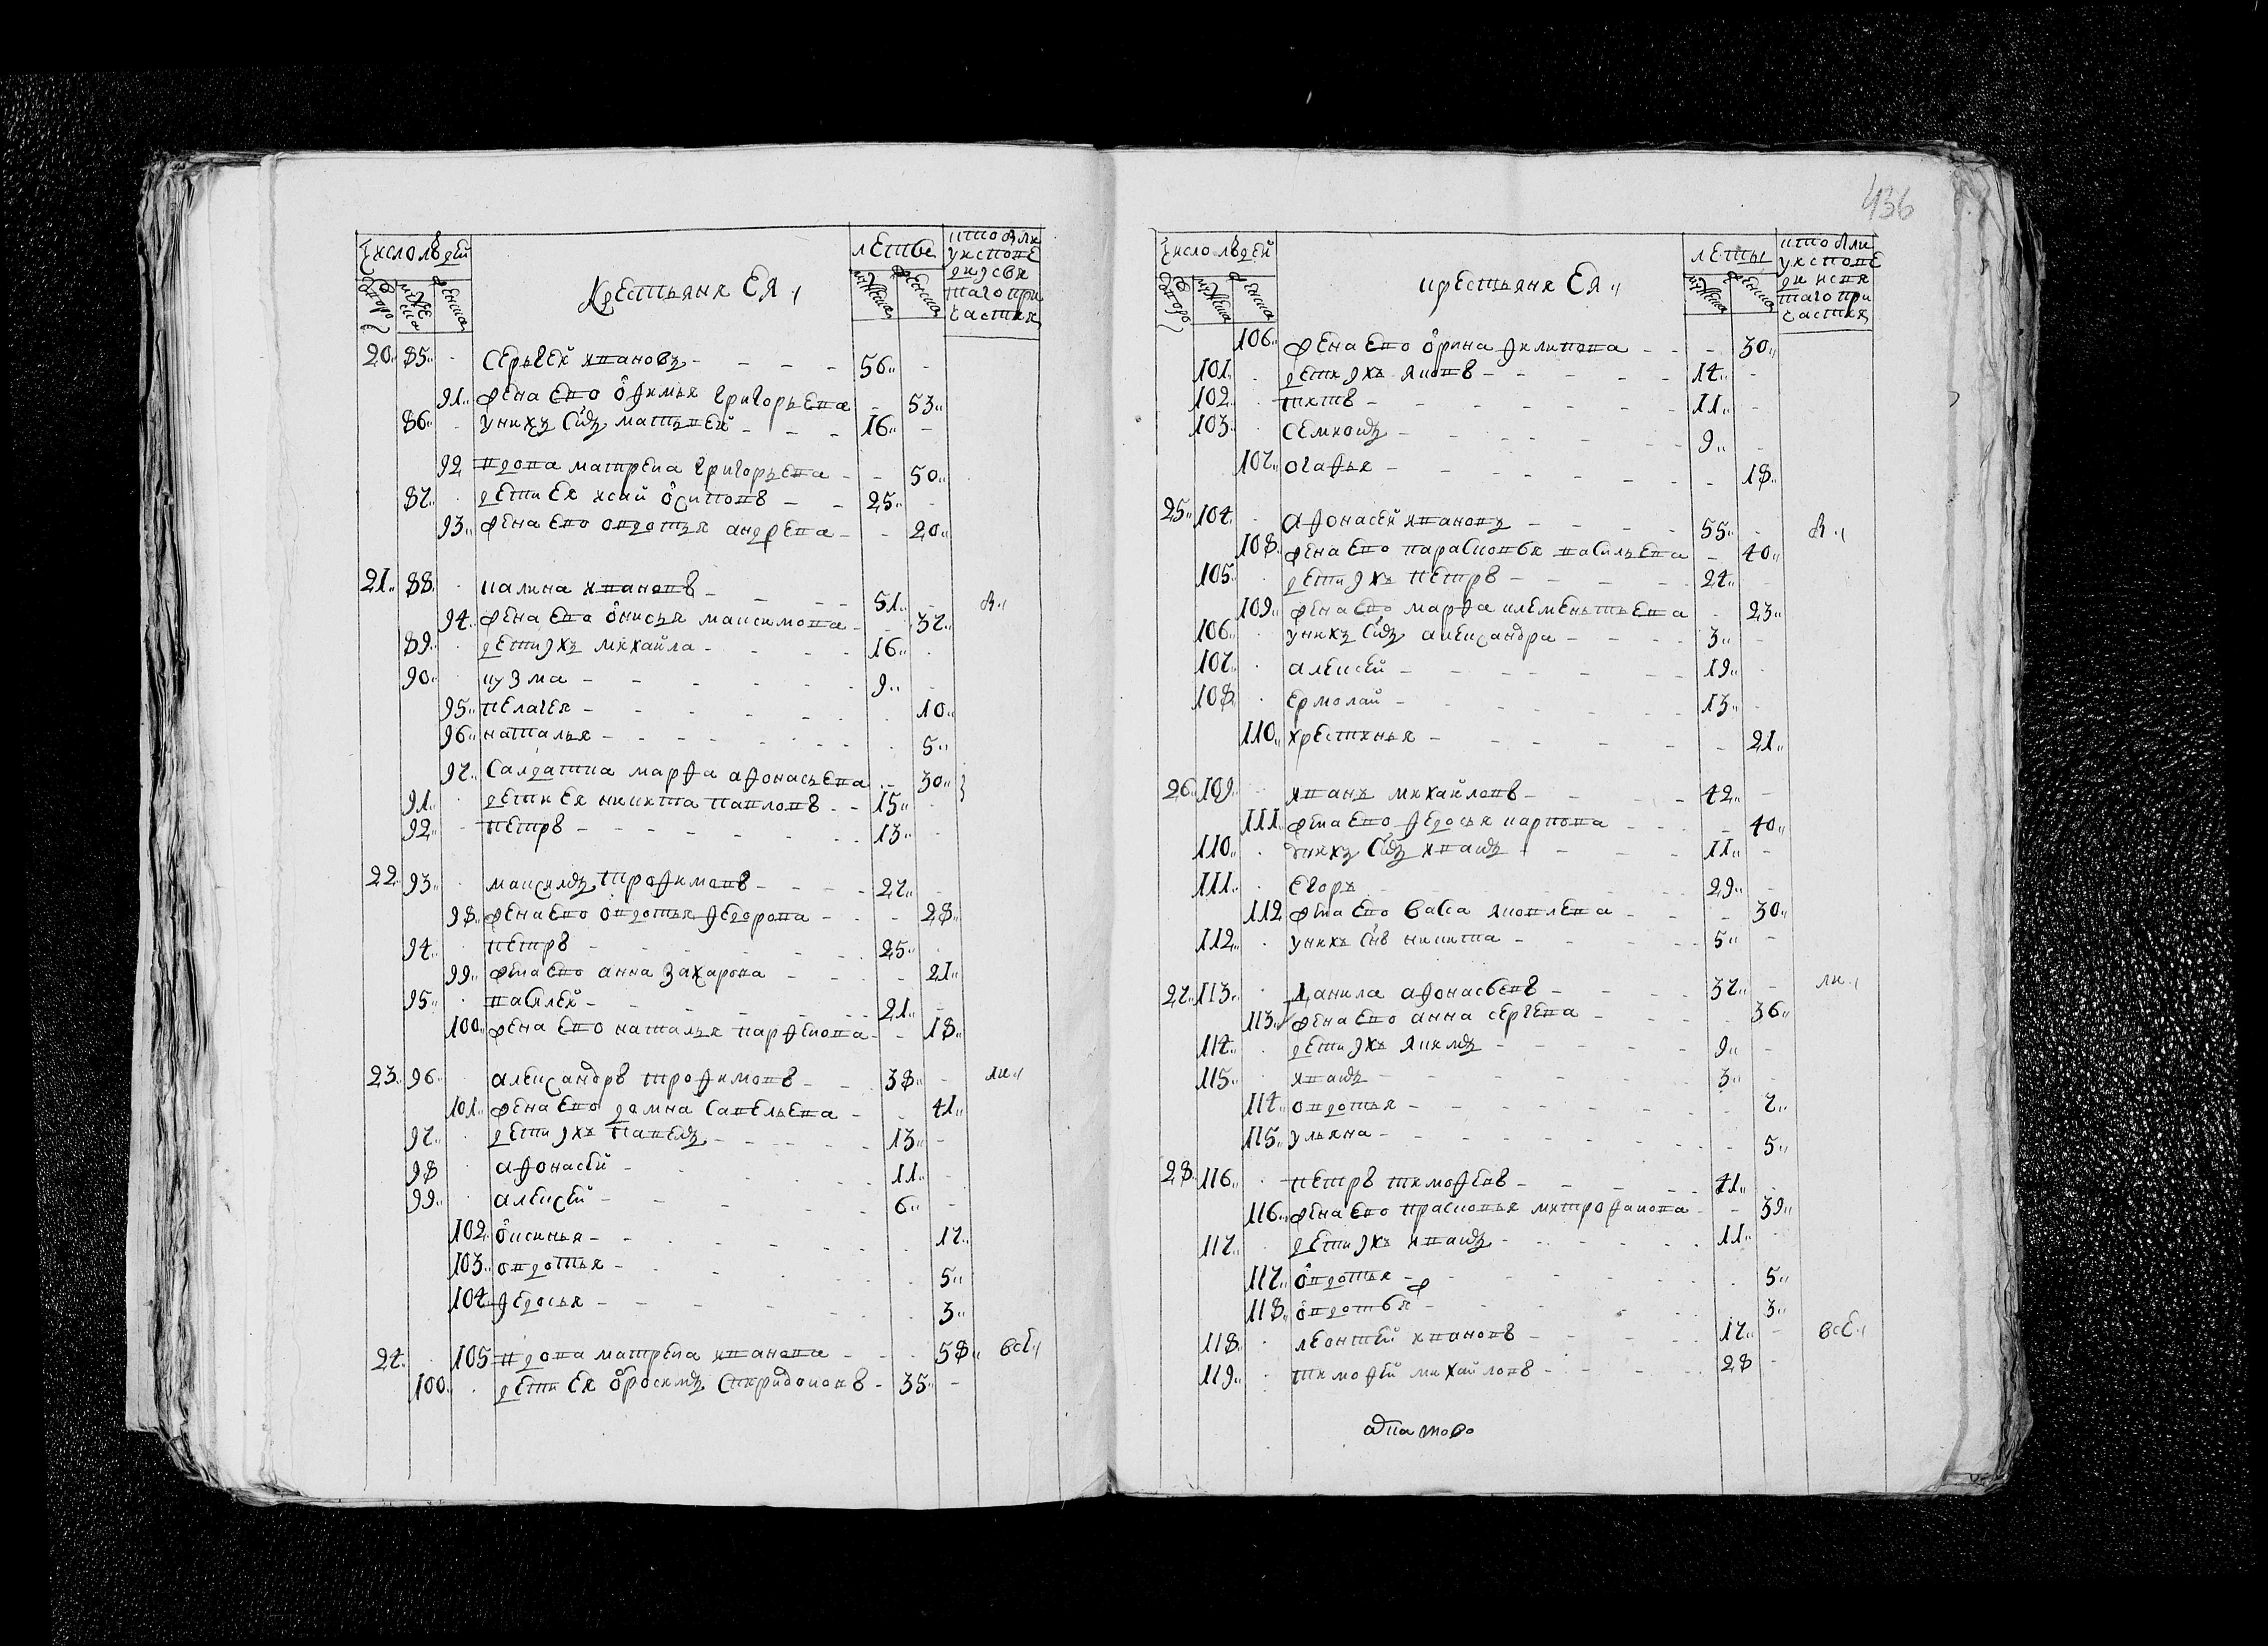 436
Число людей
дворо
мужеска
женска
Крестьяне Ея
летъ
мужеска
женска
кто был
у испове
ди и свя
таго при
частия
20 85 Сергей Ивановъ 56
91 жена Ево Офимья Григорьева 53
86 у них сынъ Матвей 16
92 вдова Матрена Григорьева 50
87 дети Ея Исай Осиповъ 25
93 жена Ево Овдотья Андрева 20
21 88 Калина Ивановъ 51 б
94 жена Ево Онисья Максимова 37
89 дети их Михайла 16
90 Кузма 9
95 Пелагея 10
96 Наталья 5
97 Салдатка Марфа Афонасьева 30
91 дети Ея Никита Павловъ 15
92 Петръ 13
22 93 Максимъ Трофимовъ 27
98 жена Ево Овдотья Федорова 28
94 Петръ 25
99 жена Ево Анна Захарова 21
95 Василей 21
100 жена Ево Наталья Парфенова 18
23 96 Александръ Трофимовъ 38 ли
101 жена Ево Домна Савельева 41
97 дети их Павелъ 13
98 Афонасей 11
99 Алексей 6
102 Оксинья 17
103 Овдотья 5
104 Федосья 3
24 105 вдова Матрена Иванова 58 все
100 дети Ея Обросимъ Спиридоновъ 35
Число людей
дворо
мужеска
женска
крестьяне Ея
леты
мужеска
женска
кто были
у испове
ди и свя
таго при
частия
106 жена Ево Орина Филипова 30
101 дети их Яковъ 14
102 Титъ 11
103 Семионъ 9
107 Огафья 18
25 104 Афонасей Ивановъ 55 б
108 жена Ево Парасковья Васильева 40
105 дети их Петръ 24
109 жена Ево Марфа Клеменьтьева 23
106 у них сынъ Александра 3
107 Алексей 19
108 Ермолай 13
110 Хрестинья 21
26 109 Иванъ Михайловъ 42
111 жена Ево Федосья Карпова 40
110 у них сынъ Иванъ 11
111 Егоръ 29
112 жена Ево Васса Яковлева 30
112 у них сынъ Никита 5
27 113 Данила Афонасьевъ 37 ли
113 жена Ево Анна Сергева 36
114 дети их Якимъ 9
115 Иванъ 3
114 Овдотья 7
115 Ульяна 5
28 116 Петръ Тимофевъ 41
116 жена Ево Прасковья Митрофанова 39
117 дети их Иванъ 11
117 Овдотья 5
118 Овдотья ж 3
118 Леонтей Ивановъ 17 все
119 Тимофей Михайловъ 28